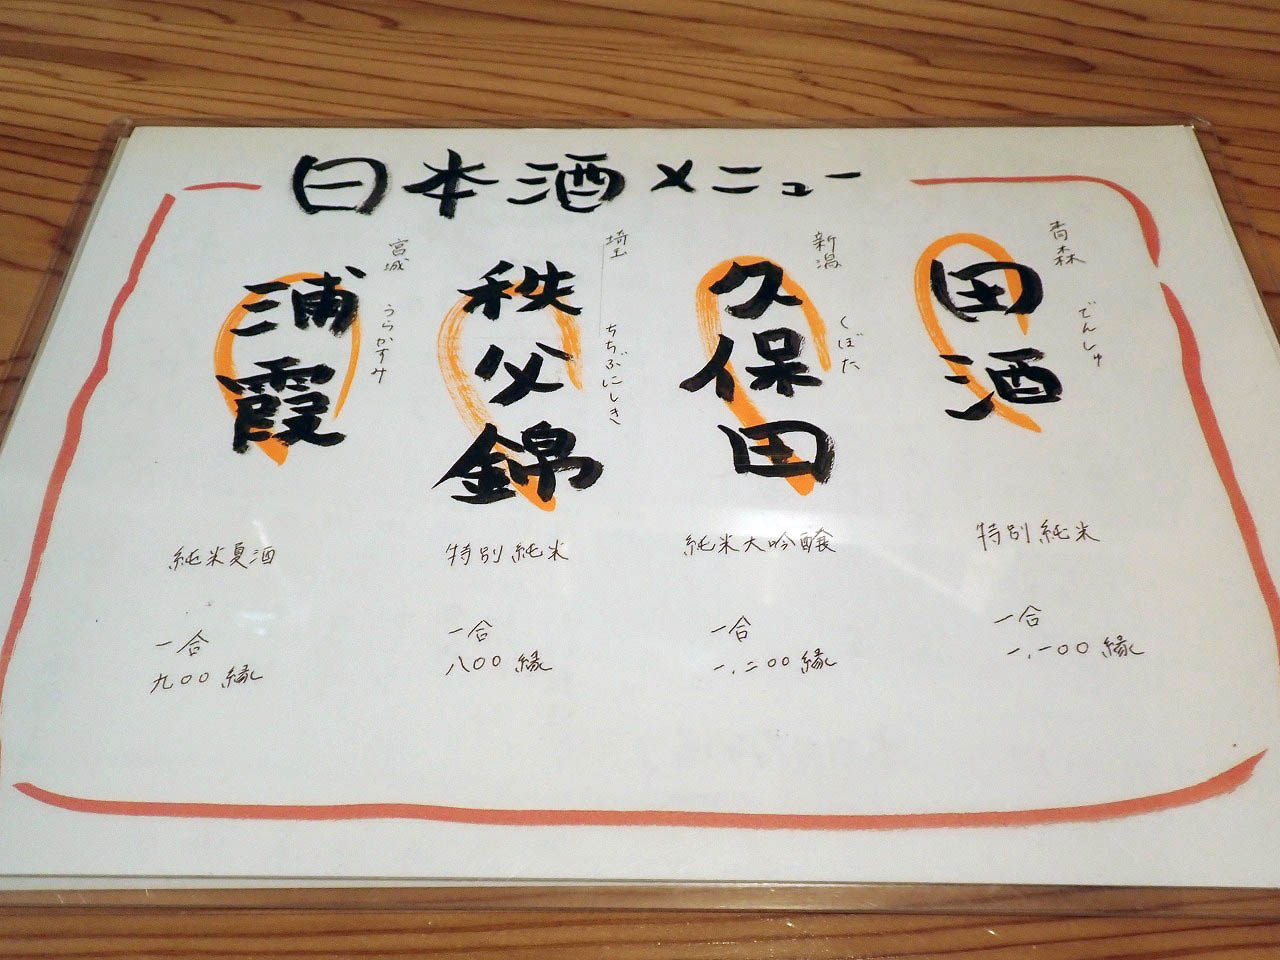 日本酒メニュー
青森
田酒
でんしゅ
特別純米
一合
一、一〇〇縁
新潟
久保田
くぼた
純米大吟醸
一合
一、二〇〇縁
埼玉
秩父錦
ちちぶにしき
特別純米
一合
八〇〇縁
宮城
浦霞
うらかすみ
純米夏酒
一合
九〇〇縁